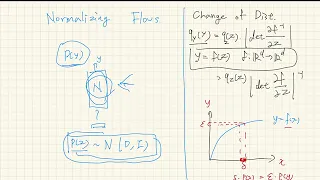 Normalizing Flows
P(y)
y
N
?
P(z) ~ N (0, I)
Change of Dist.
q_y(y) = q(z) | det ∂f⁻¹ / ∂z |
y = f(z) f: ℝᵈ → ℝᵈ
= q_z(z) | det ∂f / ∂z |⁻¹
y
y = f(x)
ε
δ
x
δ · P(x) = ε · P(y)